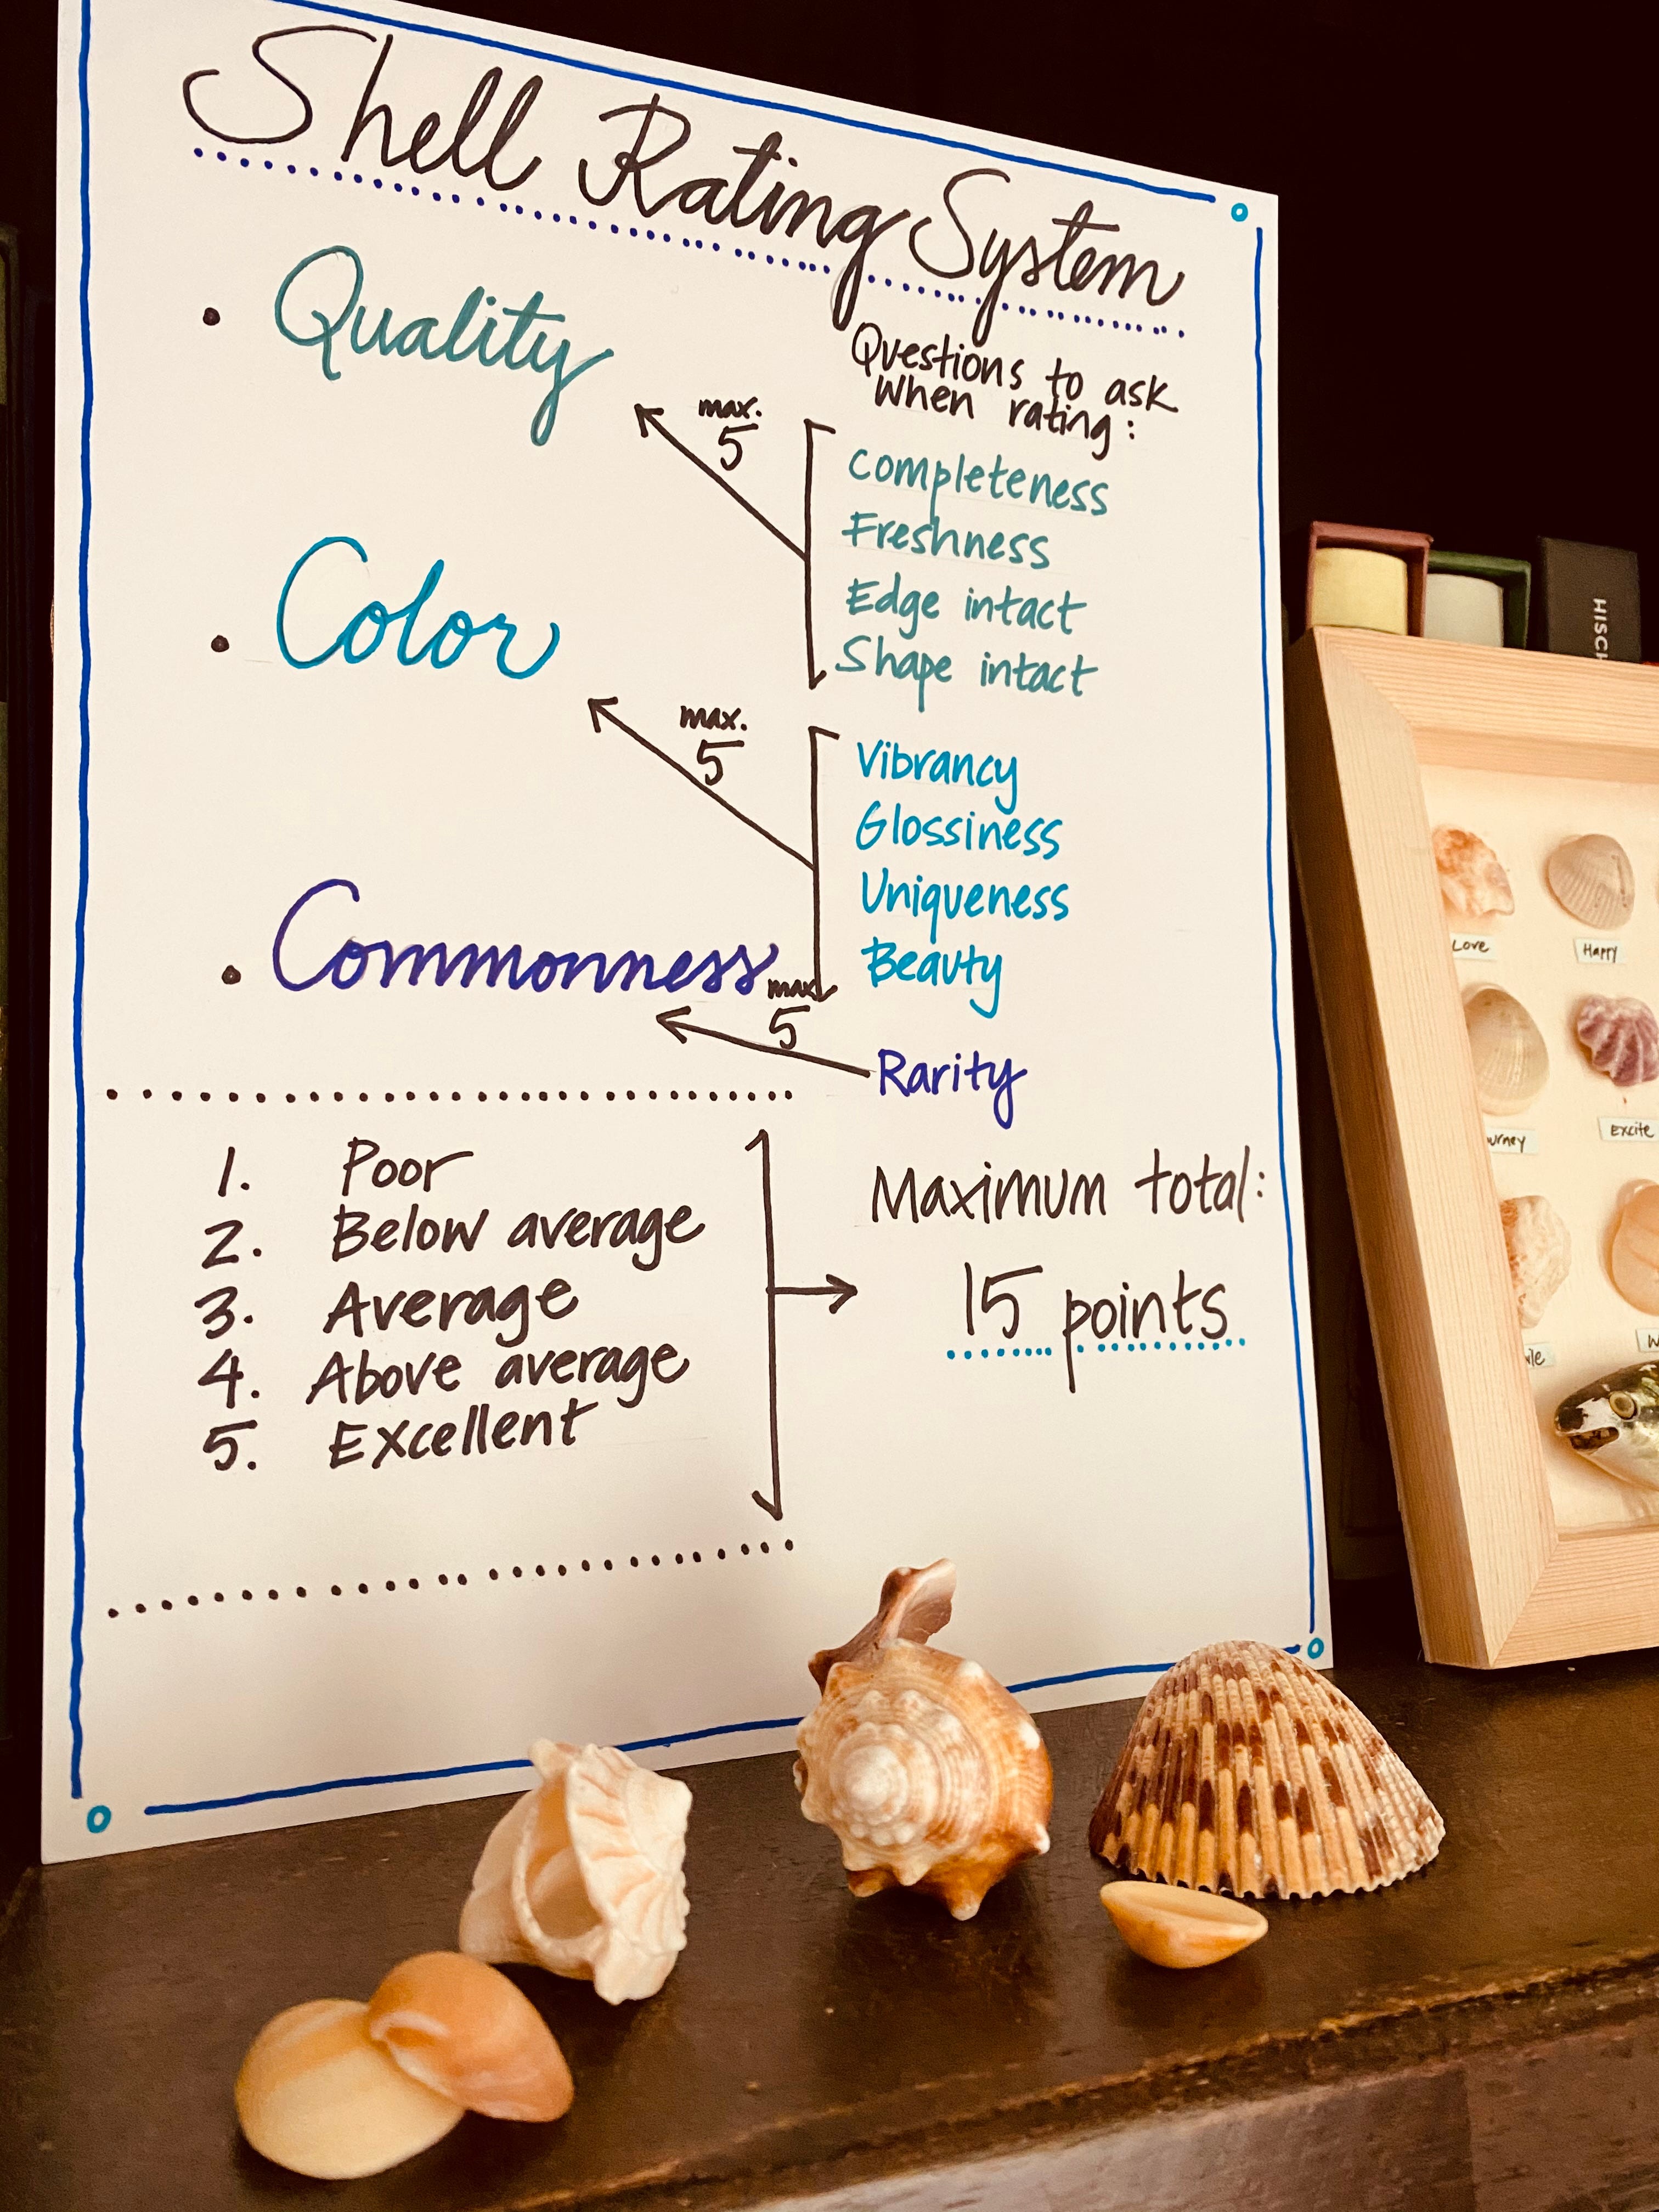 Shell Rating System
• Quality
Questions to ask
when rating:
max.
5
Completeness
Freshness
Edge intact
Shape intact
• Color
max.
5
Vibrancy
Glossiness
Uniqueness
Beauty
• Commonness
max.
5
Rarity
1. Poor
2. Below average
3. Average
4. Above average
5. Excellent
Maximum total:
15 points
Love
Happy
Excite